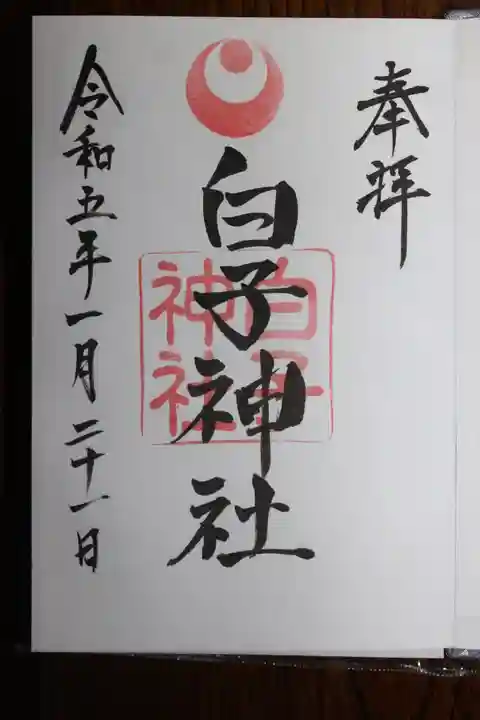 奉拝
白子神社
白子神社
令和五年一月二十一日